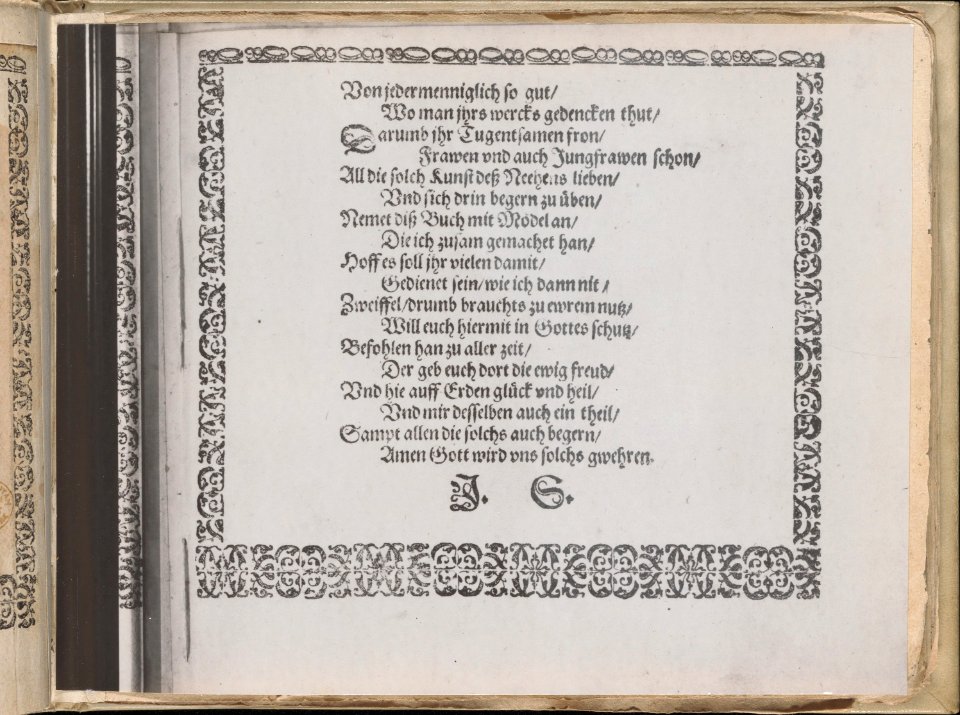 Von jedermenniglich so gut/
Wo man jhrs wercks gedencken thut/
Darumb jhr Tugentsamen fron/
Frawen vnd auch Jungfrawen schon/
All die solch Kunst deß Neehens lieben/
Vnd sich drin begern zu üben/
Nemet diß Buch mit Model an/
Die ich zusam gemachet han/
Hoff es soll jhr vielen damit/
Gedienet sein/wie ich dann nit/
Zweiffel/drumb brauchts zu ewrem nutz/
Will euch hiermit in Gottes schutz/
Befohlen han zu aller zeit/
Der geb euch dort die ewig freud/
Vnd hie auff Erden glück vnd heil/
Vnd mir desselben auch ein theil/
Sampt allen die solchs auch begern/
Amen Gott wird vns solchs gwehren.
J. S.